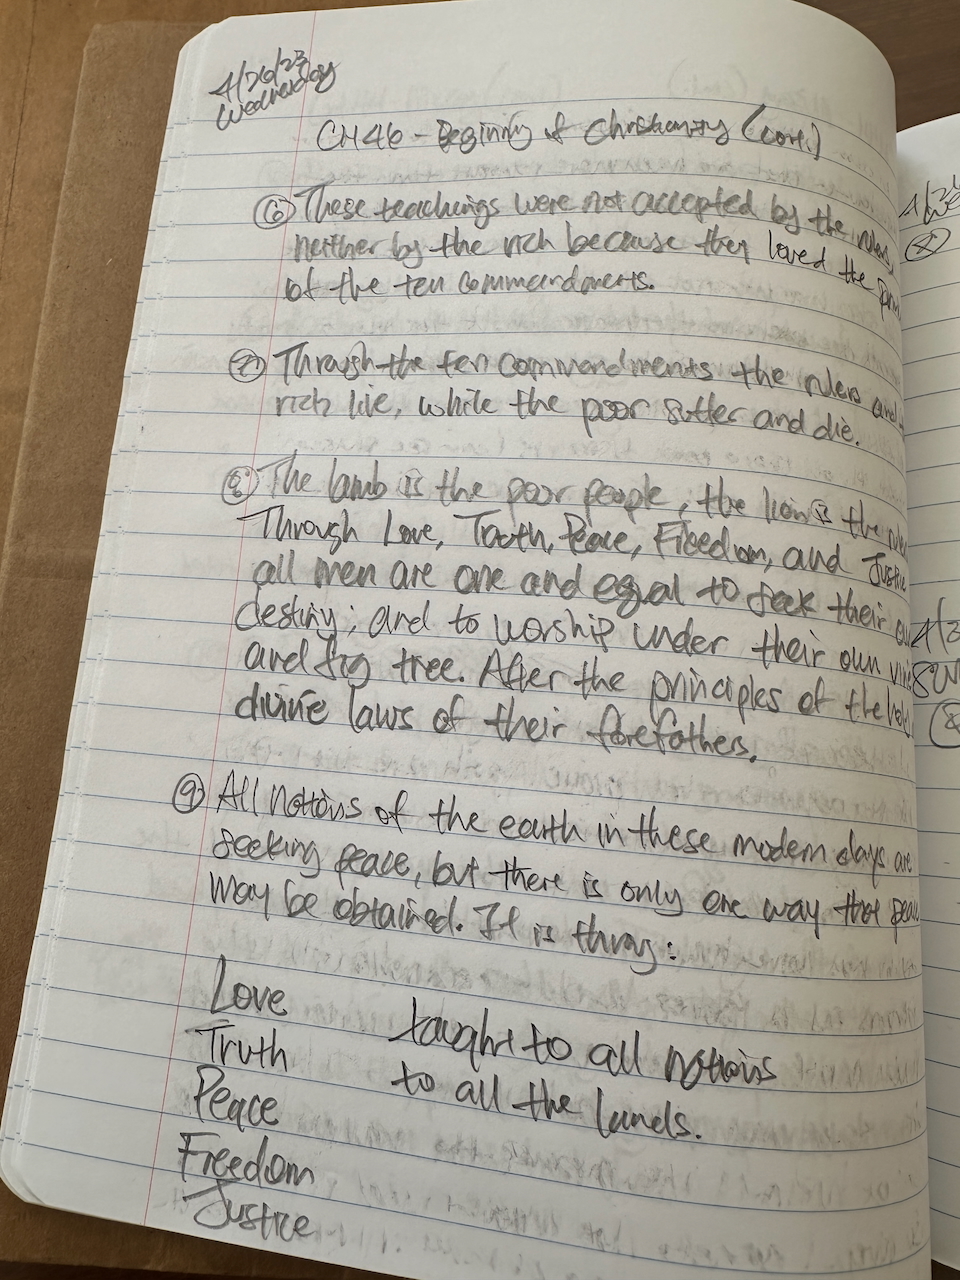 4/26/23
Wednesday
CH46 - Beginning of Christianity (cont.)
⑥ These teachings were not accepted by the rulers,
neither by the rich because they loved the
of the ten commandments.
⑦ Through the ten commandments the rulers and
rich live, while the poor suffer and die.
⑧ The lamb is the poor people, the lion is the
Through Love, Truth, Peace, Freedom, and Justice
all men are one and equal to seek their
destiny; and to worship under their own
and fig tree. After the principles of the
divine laws of their forefathers.
⑨ All nations of the earth in these modern days are
seeking peace, but there is only one way that
may be obtained. It is throug:
Love
Truth
Peace
Freedom
Justice
taught to all nations
to all the lands.